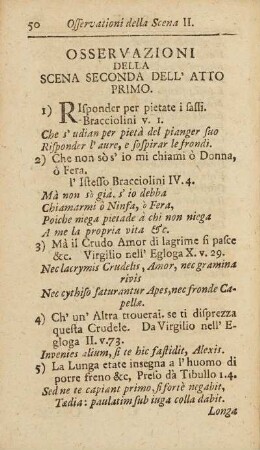 50 Osservationi della Scena II.
OSSERVAZIONI
DELLA
SCENA SECONDA DELL' ATTO
PRIMO.
1) RIsponder per pietate i sassi.
Bracciolini v. 1.
Che s' udian per pietà del pianger suo
Risponder l' aure, e sospirar le frondi.
2) Che non sò s' io mi chiami ò Donna,
ò Fera.
l' Istesso Bracciolini IV. 4.
Mà non sò già, s' io debba
Chiamarmi ò Ninfa, ò Fera,
Poiche mega pietade à chi non niega
A me la propria vita &c.
3) Mà il Crudo Amor di lagrime si pasce
&c. Virgilio nell' Egloga X. v. 29.
Nec lacrymis Crudelis, Amor, nec gramina
rivis
Nec cythiso saturantur Apes, nec fronde Ca-
pellæ.
4) Ch' un' Altra trouerai. se ti disprezza
questa Crudele. Da Virgilio nell' E-
gloga II. v. 73.
Invenies alium, si te hic fastidit, Alexis.
5) La Lunga etate insegna a l' huomo di
porre freno &c, Preso dà Tibullo 1. 4.
Sed ne te capiant primo, si fortè negabit,
Tædia: paulatim sub iuga colla dabit.
Longa